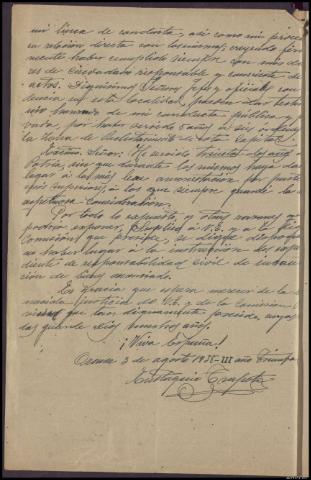 mi línea de conducta, así como mi proceder
en relación directa con los mismos, creyendo fir-
memente haber cumplido siempre con mis debe-
res de ciudadano responsable y consciente de
actos. Dignísimos Señores Jefes y oficiales con
dencia en esta localidad, pueden dar testimo
nio honrado de mi conducta pública y
vada por haber servido 5 años a sus órdenes
la Zona de Reclutamiento de esta Capital.
Excmo. Señor: He servido treinta y dos años
Patria, sin que durante los mismos haya dado
lugar a la más leve amonestación por parte
mis superiores, a los que siempre guardé la
respetuosa consideración.
Por todo lo expuesto, y otras razones que
podría exponer, Suplico a V.E. y a la
Comisión que preside, se digne disponer
no haber lugar a la instrucción del expe
diente de responsabilidad civil de incau
tación de bienes mencionado.
Es gracia que espera merecer de la
conocida justicia de V.E. y de la Comisión
que tan dignamente preside, cuyas
das guarde Dios muchos años.
¡Viva España!
Orense 3 de agosto 1938 - III año Triunfal
Eustaquio